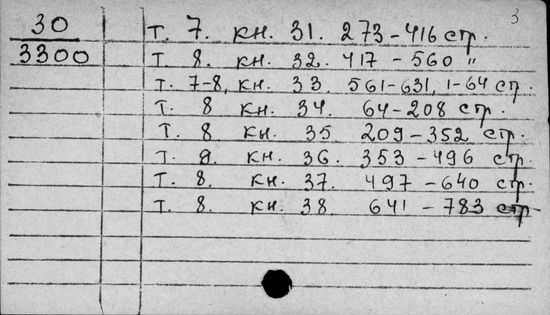 3
30 Т. 7. кн. 31. 273-416 стр.
3300 Т. 8. кн. 32. 417 - 560 "
Т. 7-8, кн. 33. 561-631, 1-64 стр.
Т. 8 кн. 34. 64-208 стр.
Т. 8 кн. 35. 209-352 стр.
Т. 8. кн. 36. 353-496 стр.
Т. 8. кн. 37. 497-640 стр.
Т. 8. кн. 38. 641-783 стр